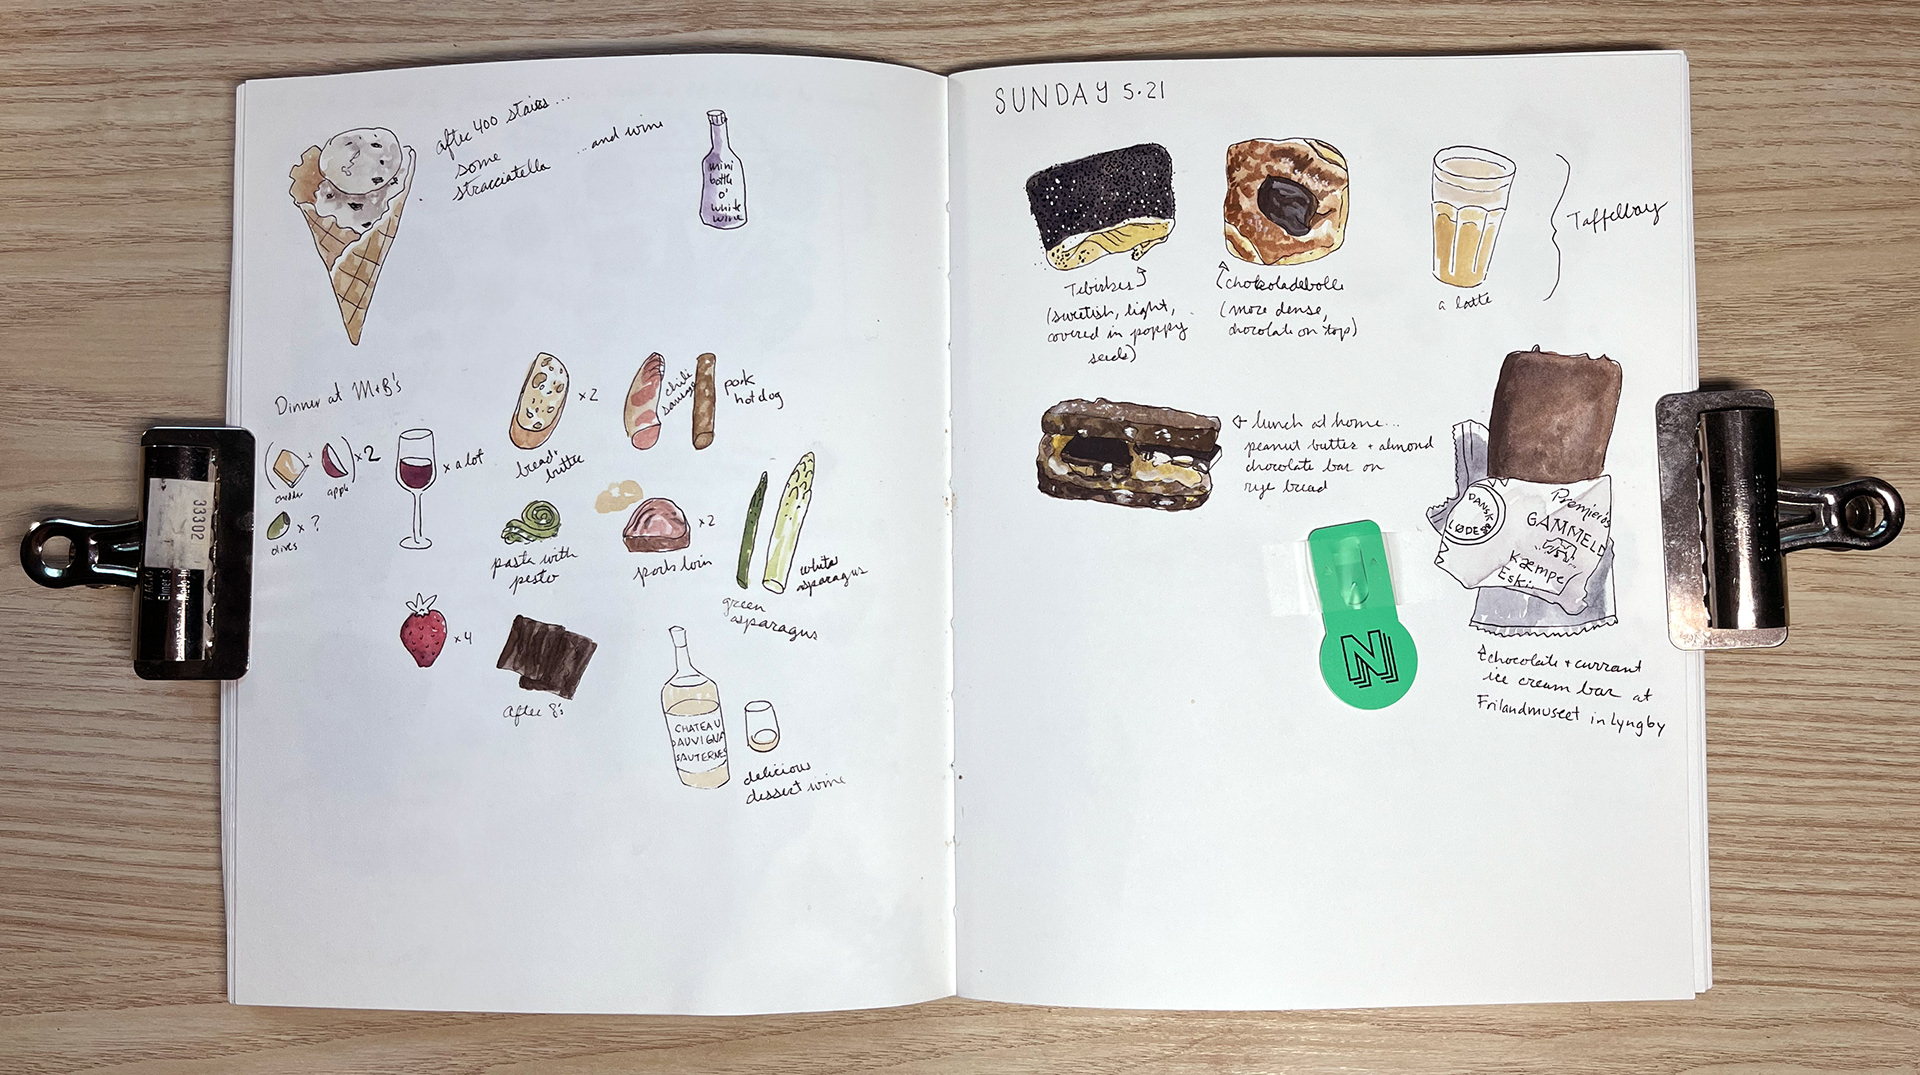 after 400 stairs...
some
stracciatella
...and wine
mini
bottle
o'
white
wine
Dinner at M+B's
( cheddar + apple ) x 2
olives x ?
x a lot
bread+
butter
x 2
chili
sausage
pork
hot dog
pasta with
pesto
pork loin
x 2
green
asparagus
white
asparagus
x 4
After 8's
CHATEAU
SAUTERNES
delicious
dessert wine
SUNDAY 5.21
Tebirkes
(sweetish, light,
covered in poppy
seeds)
chokoladebolle
(more dense,
chocolate on top)
a latte
Taffelbay
lunch at home...
peanut butter + almond
chocolate bar on
rye bread
DANSK
LØDE
Premieris
GAMMELD
Kæmpe
Eski
chocolate + currant
ice cream bar at
Frilandmuseet in Lyngby
N
33302